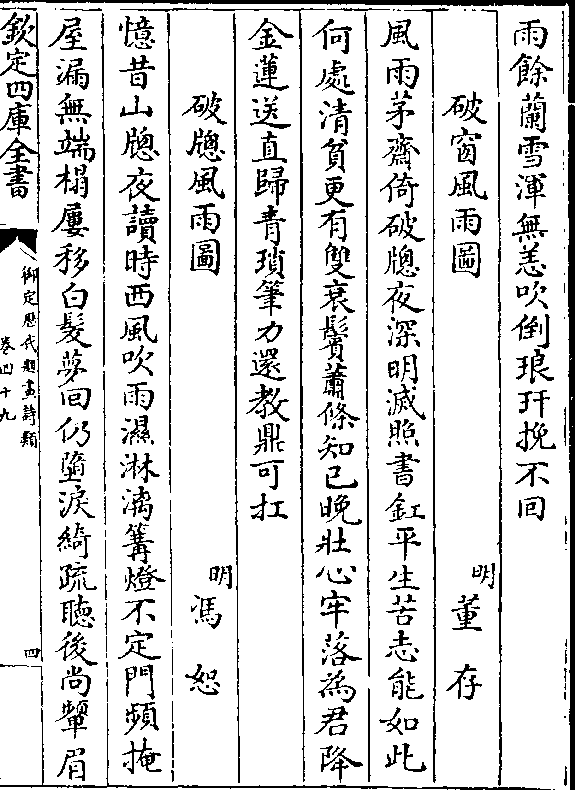 雨餘蘭雪渾無恙吹倒琅玕挽不回
破窗風雨圖
明董存
風雨茅齋倚破牕夜深明滅照書釭平生苦志能如此
何處清貧更有雙衰鬢蕭條知己晚壯心牢落為君降
金蓮送直歸青瑣筆力還教鼎可扛
破牕風雨圖
明馮恕
憶昔山牕夜讀時西風吹雨濕淋漓篝燈不定門頻掩
屋漏無端榻屢移白髮夢回仍墮淚綺疏聽後尚顰眉
欽定四庫全書
御定歷代題畫詩類
卷四十九
四